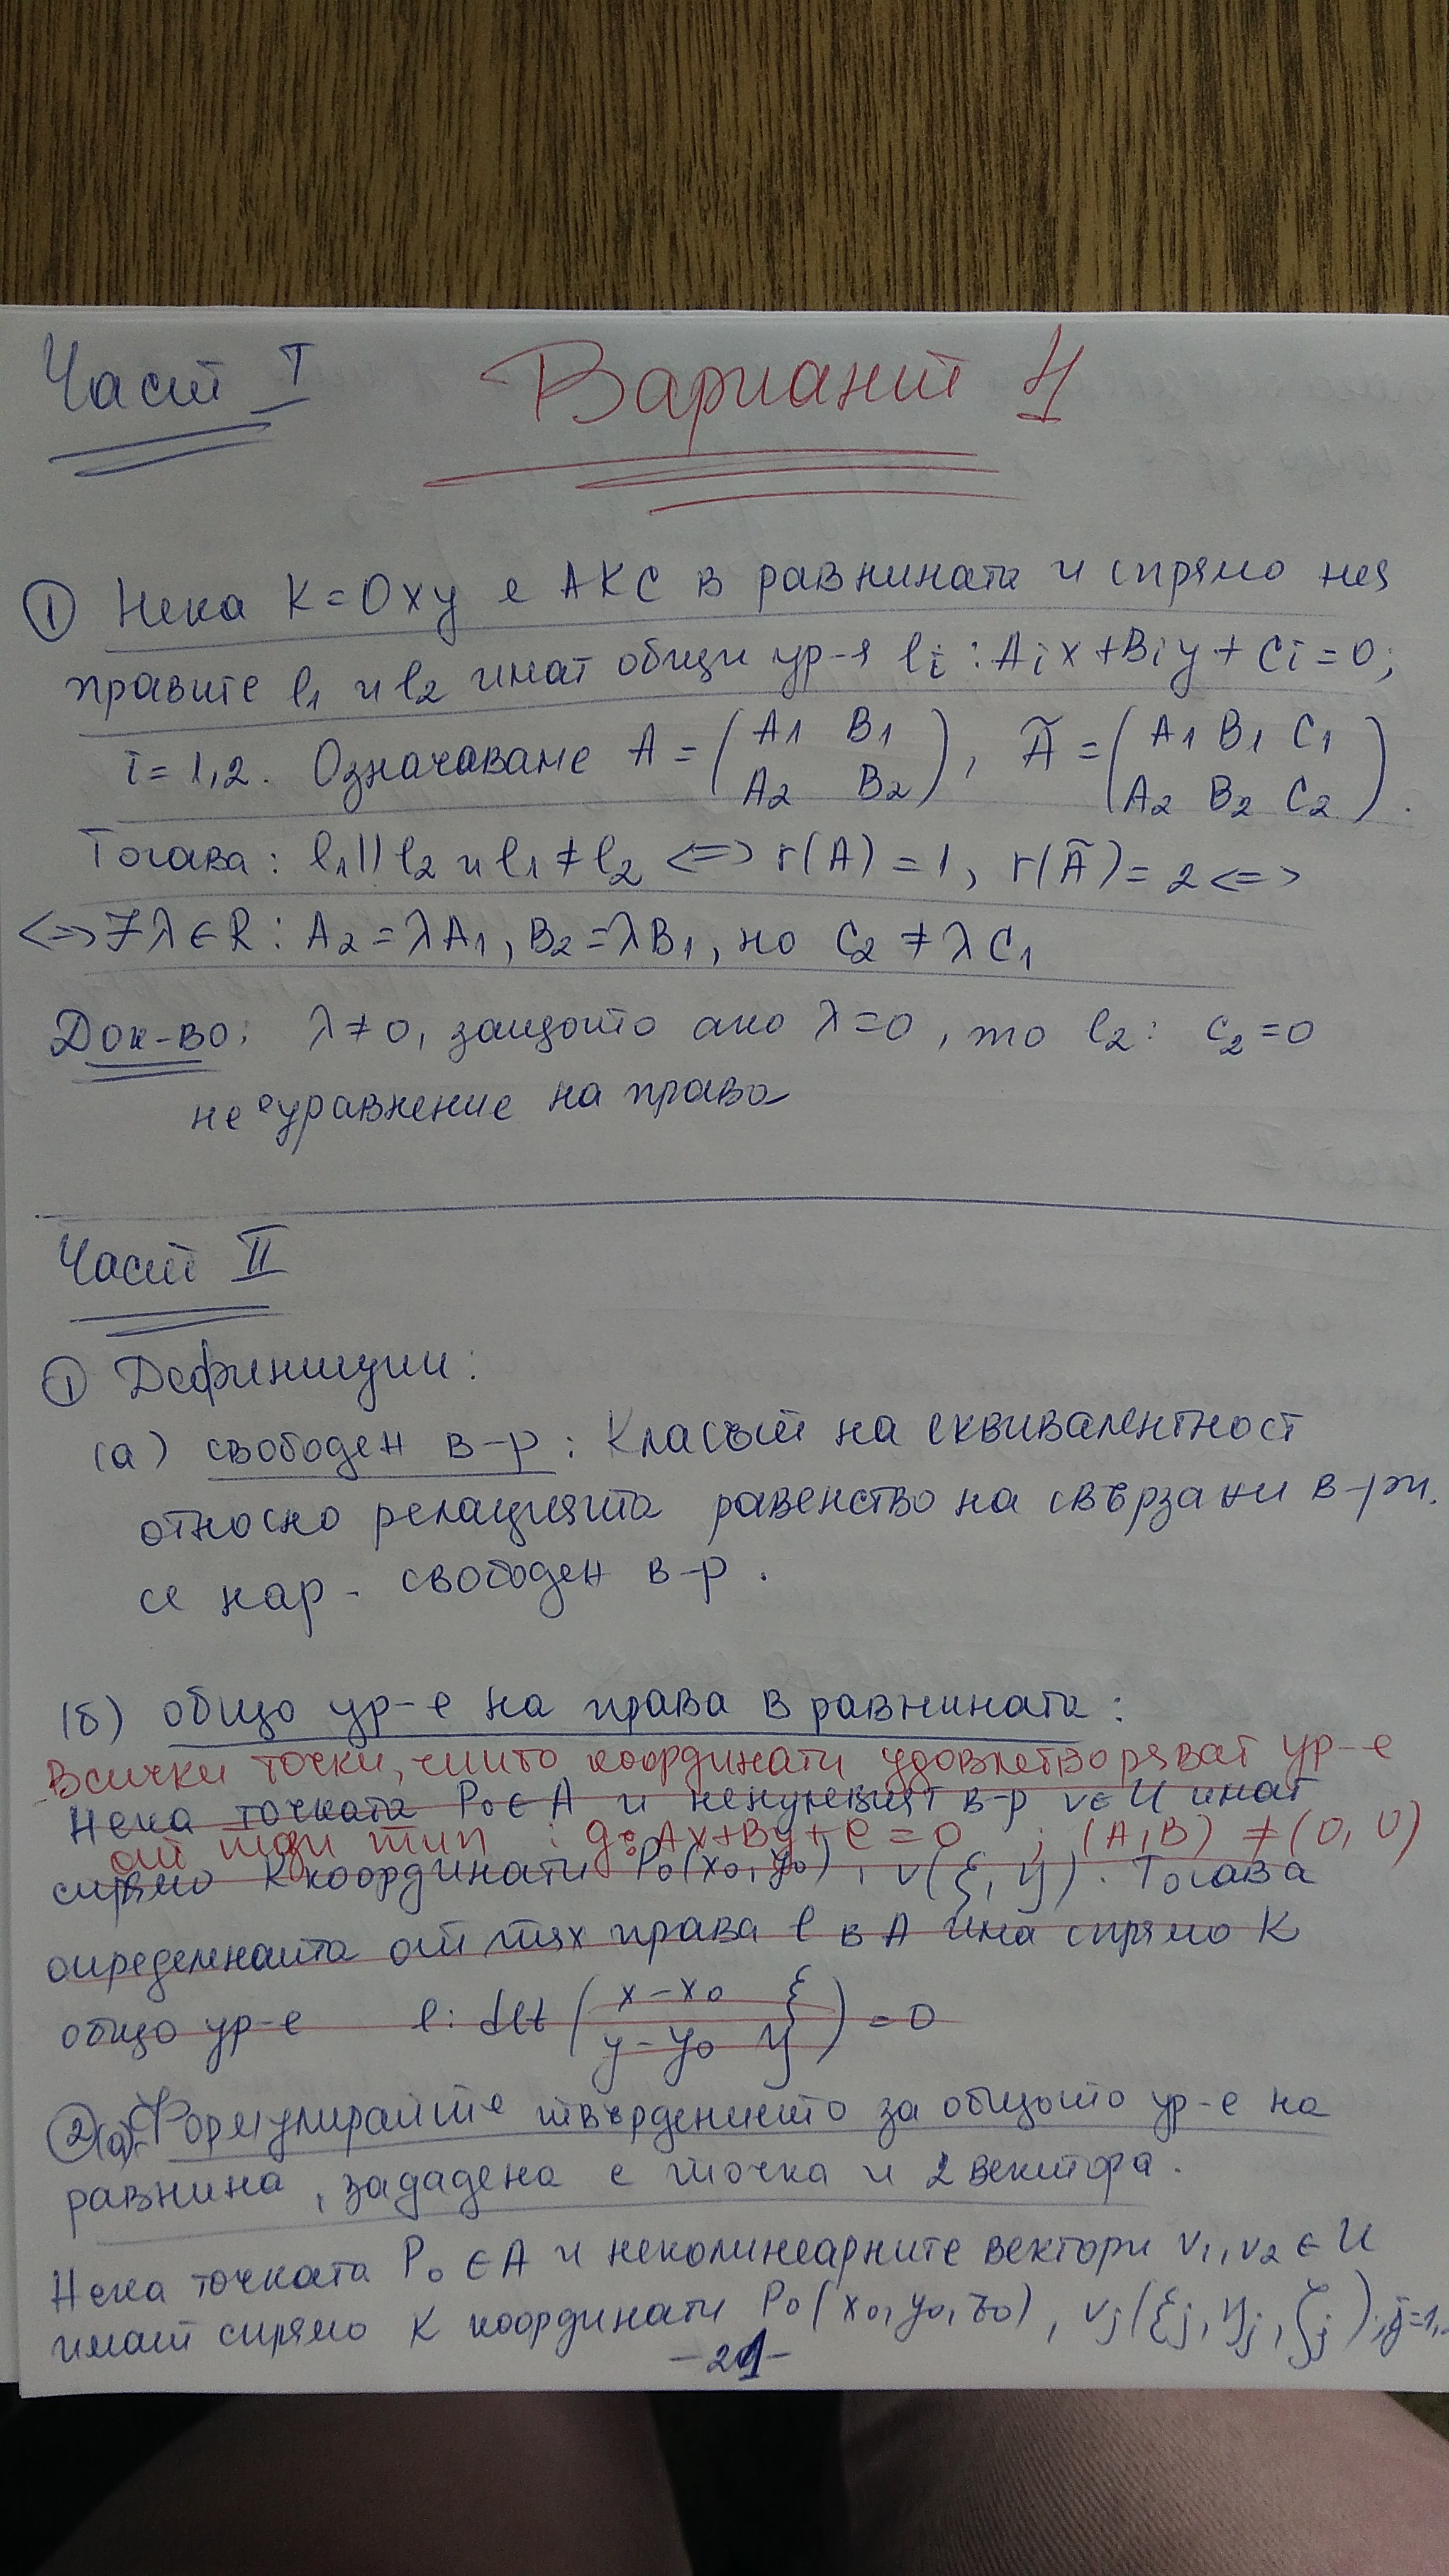 Част I Вариант 4
① Нека K=Oxy е АКС в равнината и спрямо нея
правите l₁ и l₂ имат общи ур-я lᵢ: Aᵢx+Bᵢy+Cᵢ=0;
i=1,2. Означаваме A = (A₁ B₁ A₂ B₂), Ã = (A₁ B₁ C₁ A₂ B₂ C₂).
Тогава: l₁||l₂ и l₁≠l₂ <=> r(A)=1, r(Ã)=2 <=>
<=> ∃λ∈R: A₂=λA₁, B₂=λB₁, но C₂≠λC₁
Док-во: λ≠0, защото ако λ=0, то l₂: C₂=0
не е уравнение на права
Част II
① Дефиниции:
(а) свободен в-р: Класът на еквивалентност
относно релацията равенство на свързани в-ри.
се нар. свободен в-р.
(б) общо ур-е на права в равнината:
Всички точки, чиито координати удовлетворяват ур-е
Нека точката P₀∈A и ненулевият в-р v∈U имат
от този тип : g: Ax+By+C=0 ; (A,B)≠(0,0)
спрямо K координати P₀(x₀,y₀), v(ξ,η). Тогава
определената от тях права l в A има спрямо K
общо ур-е l: det (x-x₀ ξ y-y₀ η) = 0
② (а) Формулирайте твърдението за общото ур-е на
равнина, зададена с точка и 2 вектора.
Нека точката P₀∈A и неколинеарните вектори v₁,v₂∈U
имат спрямо K координати P₀(x₀,y₀,z₀), vⱼ(ξⱼ,ηⱼ,ζⱼ), j=1,
-21-